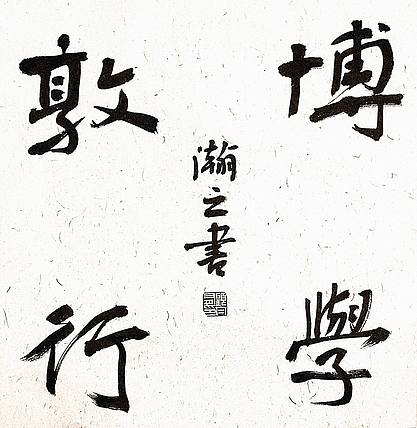 博學
敦行
瀚之書